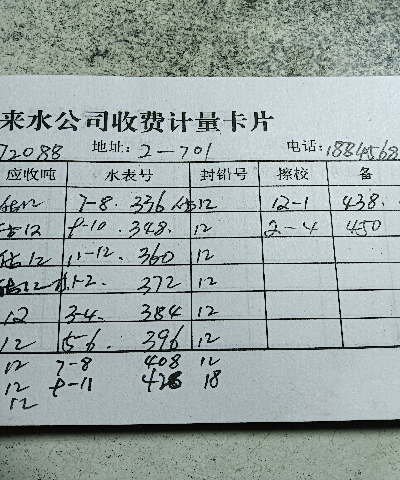 来水公司收费计量卡片
72088 地址: 2-701 电话: 1884568
应收吨 水表号 封铅号 擦校 备
估12 7-8. 336 估12 12-1 438.
估12 9-10. 348. 12 2-4 450
估12 11-12. 360 12
估12 1-2. 372 12
12 3-4. 384 12
12 5-6. 396 12
12 7-8 408 12
12 9-11 426 18
12